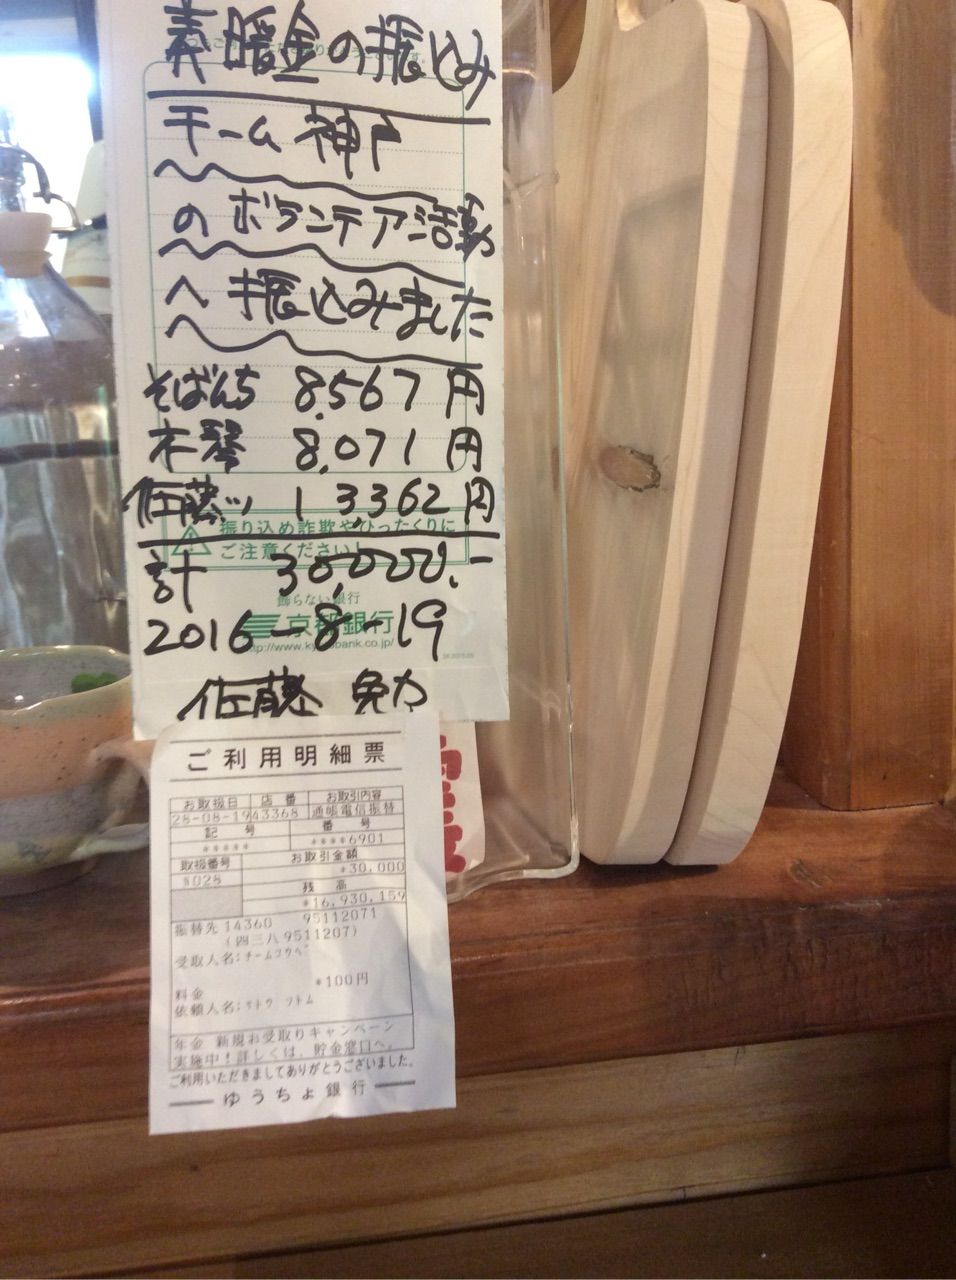 義暖金の振込み
チーム神戸
のボランテア活動
へ振込みました
そばんち 8,567円
木琴 8,071円
佐藤ッ 13,362円
振り込め詐欺やひったくりに
ご注意ください!
計 30,000.-
飾らない銀行
京都銀行
2016-8-19
佐藤 勉
ご利用明細票
お取扱日 店番 お取引内容
28-08-19 43368 通帳電信振替
記号 番号
***** ****6901
取扱番号 お取引金額
*30,000
残高
*16,930,159
振替先 14360 95112071
(四三八 9511207)
受取人名:チームコウベ
*100円
料金
依頼人名:サトウ ツトム
年金 新規お受取りキャンペーン
実施中!詳しくは、貯金窓口へ。
ご利用いただきましてありがとうございました。
ゆうちょ銀行